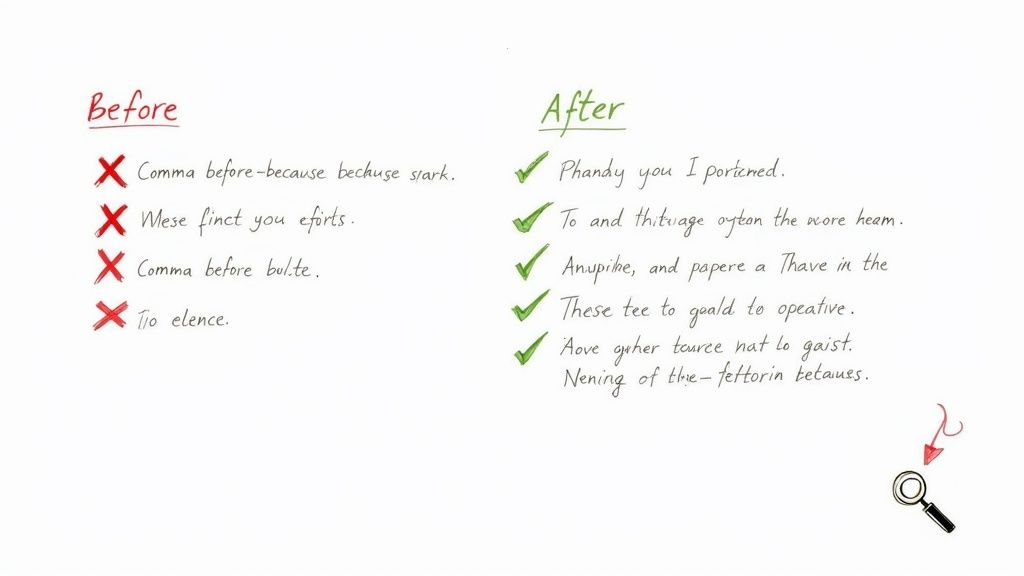 Before
Comma before-because because stark.
Mese finct you efirts.
Comma before bulte.
To elence.
After
Phandy you I portcned.
To and thituage oyteon the wore heam.
Anupihe, and papere a Thave in the
These tee to goald to opeative.
Aove gpher tource nat to gaist.
Nening of the- fettorin betauses.